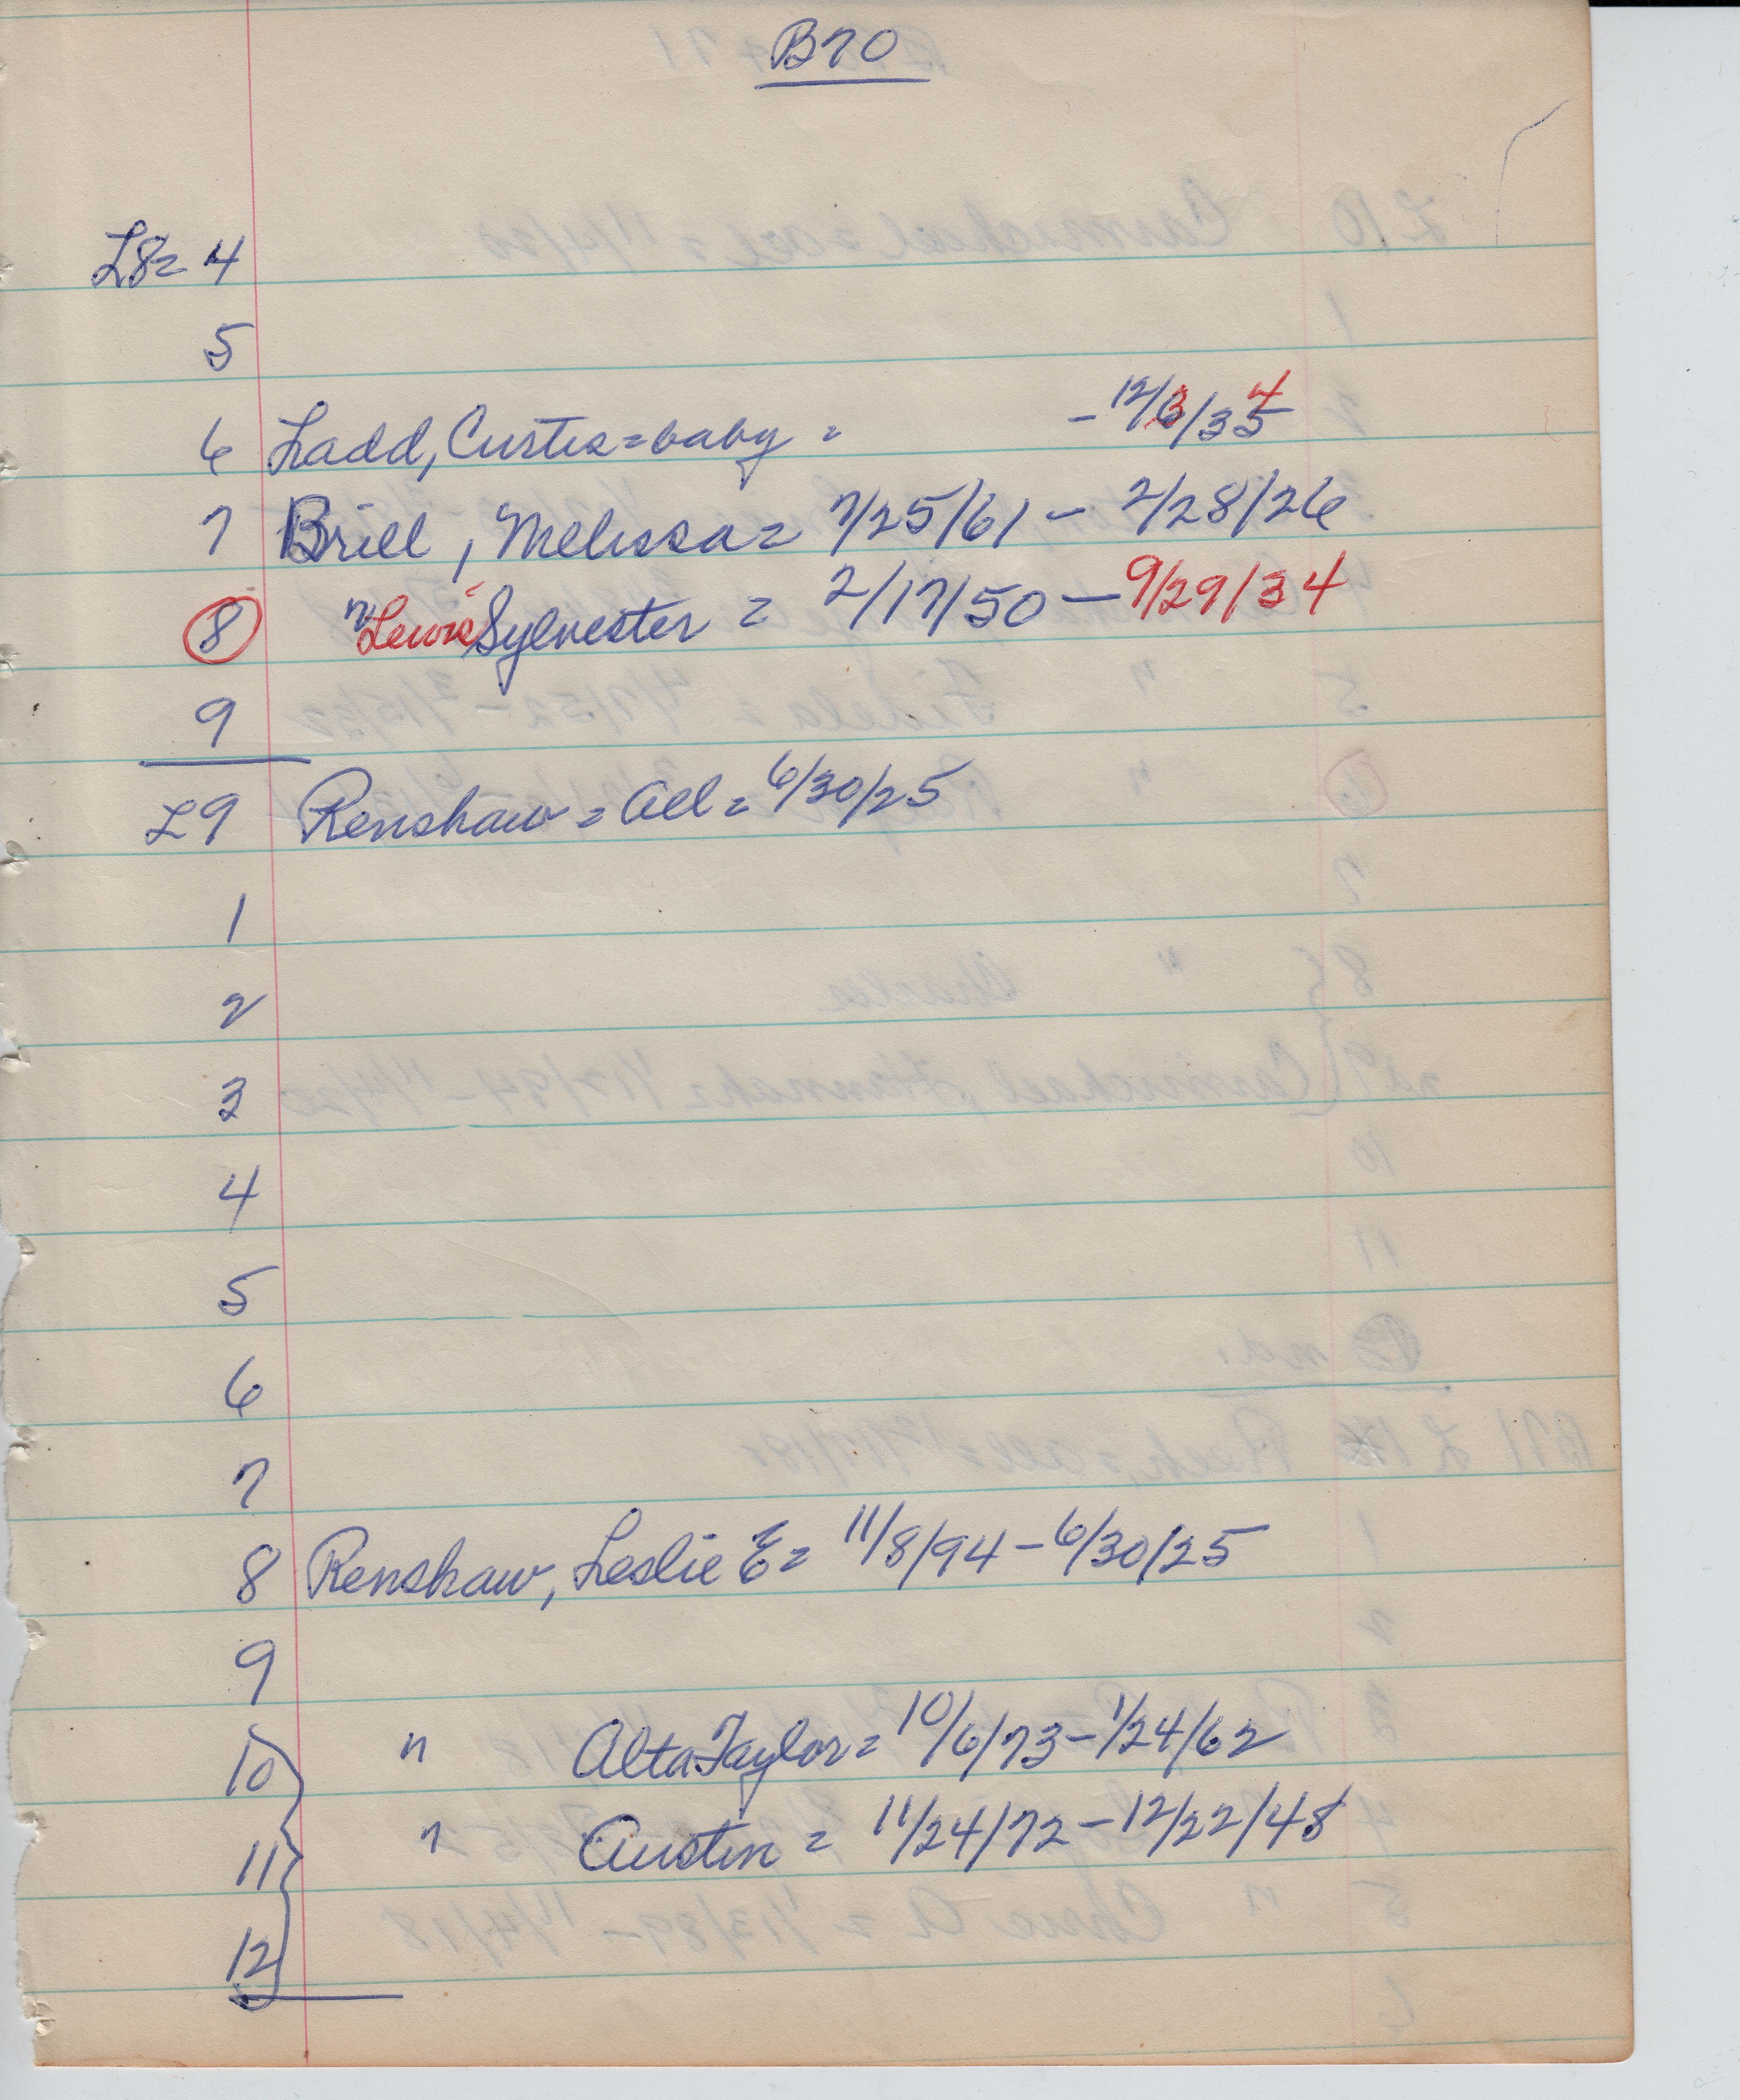 B70
L8= 4
5
6 Ladd, Curtis = baby = - 12/3/34
7 Brill, Melissa = 7/25/61 - 2/28/26
8 " Lewis Sylvester = 2/17/50 - 9/29/34
9
L9 Renshaw = all = 6/30/25
1
2
3
4
5
6
7
8 Renshaw, Leslie E = 11/8/94 - 6/30/25
9
10 " Alta Taylor = 10/6/73 - 1/24/62
11 " Austin = 11/24/72 - 12/22/48
12